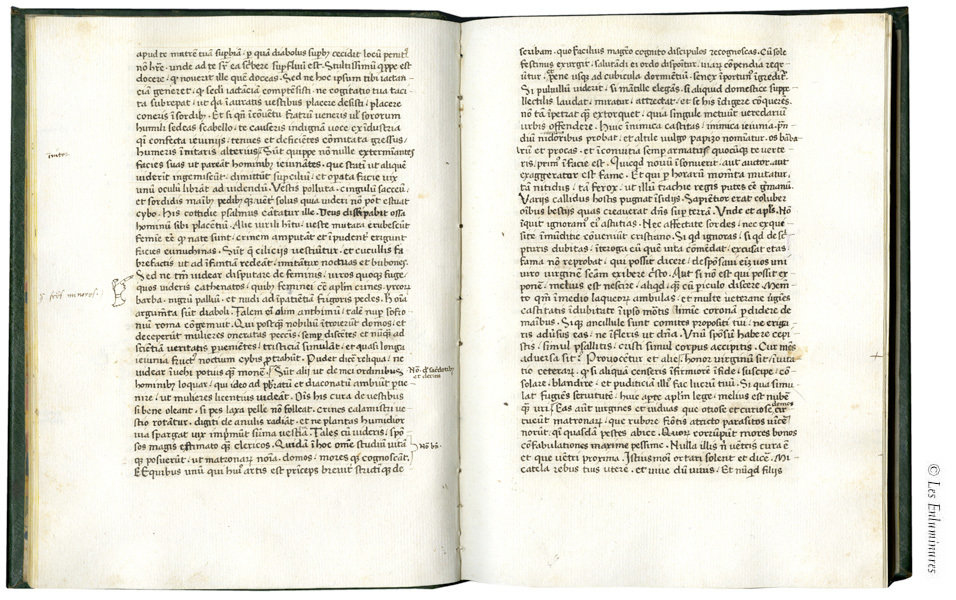 apud te matrē tuā supbiā. p quā diabolus supb9 cecidit locū penit9
nō hr̄e. unde ad te sr̄ ea scribere supfluū est. Stultissimū qppe est
docere. qđ noverit ille quē doceas. Sed ne hoc ipsum tibi iactan
ciā generet. qđ secli iactāciam cōtempsisti. ne cogitatio tua taci
ta subrepat. ut qa ī auratis vestibus placere desisti. placere
coneris ī sordib9. Et si qn̄ ī cōvētu fratrū veneris vl' sororum
humili sedeas scabello. te causeris indignā. voce ex īdustria
qi cōfecta ieiuniis. tenues et deficiētes cōmutata gressus.
humeris īnitaris alterius. Sūt quippe nō nulle exterminantes
facies suas ut pareāt hominib9 ieiunātes. que stati ut aliquē
viderit ingemiscūt. dimittūt supciliū. et opata facie vix
unū oculū librāt ad videndū. Vestis pullata. cingulū sacceū
et sordidis manib9 pedib9qз. vēter solus quia videri nō pōt estuat
cybo. His cottidie psalmus cātatur ille. Deus dissipabit ossa
hominū sibi placētiū. Alie virili hitu. veste mutata erubescūt
femine eē qđ nate sunt. crinem amputāt et īpudenter erigunt
facies eunuchinas. Sūt q cilicijs vestiūtur. et cucullis fa
brefactis ut ad īfantiā redeāt. imitātur noctuas et bubones.
Sed ne tm̄ videar disputare de feminis. viros quoqз fuge.
quos videris cathenatos. quibus feminei cōtra ap̄lm crines. yrcorū
barba. nigrū palliū. et nudi ad īpatientiā frigoris pedes. H9 oīa
argumēta sūt diaboli. Talem ēt olim anthimū. talē nup sofro
niū roma cōgemuit. Qui postqз nobiliū ītroierūt domos. et
deceperūt mulieres oneratas peccatis. semp discētes et nūqз ad
sciētiam veritatis pvenientes. tristiciā simulāt. et quasi longa
ieiunia furtivis noctium cybis ptrahūt. Pudet dicē reliqua. ne
videar ivehi potius qз monē. Sūt alij ut de mei ordinibus
hominib9 loquar. qui ideo ad pbratū et diaconatū ambiūt pue
nire. ut mulieres licentius videāt. Om̄is his cura de vestibus
si bene oleant. si pes laxa pelle nō folleat. crines calamistri ve
stio rotātur. digiti de anulis radiāt. et ne plantas humidior
via spargat vix imprimūt summa vestigia. Tales cū videris. spō
sos magis estimato qз clericos. Quidā ī hoc om̄e studiū vitā
qз posuerūt. ut matronarum noīa. domos. moresqз cognoscāt.
E quibus unū qui hui9 artis est prīceps breviter strictīqз de
inter
Nō. qđ sacerdotib9
et clericis
Nō bn̄.
scribam. quo facilius magrō cognito discipulos recognoscas. Cū sole
festinus exurgit. salutādi ei ordo dispoītur. viarum cōpendia requi
rūtur. & pene usqз ad cubicula dormiētiū. senex īportun9 īgredit'.
Si pulvillū viderit. si mantille elegans. si aliquid domestice supe
llectilis laudat. miratur. attrectat. et se his īdigere cōquerēs.
nō tā īpetrat qз extorquet. quia singule metuūt veredariū
urbis offendere. Huic inimica castitas. inimica ieiunia. prā
diū nidoribus probat. et altile vulgo papizo nomīatur. os barba
rū et procax. et ī convitia semp armatus. quocūqз te verte
ris. primus ī facie est. Quicqd novū īsonuerit. aut auctor. aut
exaggerator est fame. Equi p horarū momēta mutātur.
tā nitidus. tā ferox. ut illū trachie regis putes eē germanū.
Varijs callidus hostis pugnat īsidijs. Sapiētior erat coluber
oībus bestijs quas creaverat dn̄s sup terrā. Unde et ap̄ls. Nō
īquit ignoram9 ei9 astutias. Nec affectate sordes. nec exqui
site mūditie cōveniūt cristiano. Si qd ignoras. si qd de scri
pturis dubitas. īterroga eū quē vita cōmēdat. excusat etas.
fama nō reprobat. qui possit dicere. despōsavi eī vos uni
viro virginē scām exibere Cristo. Aut si nō est qui possit ex
ponē. melius est nescire. aliqd qз cū piculo discere. Memē
to qm̄ ī medio laqueorum ambulas. et multe veterane virgīes
castitatis īdubitate ī ipso mortis limine coronā pdidere de
manibus. Si que ancillule sunt comites propositi tui. ne eriga
ris adversus eas. ne īfleris ut dn̄a. Unū spōsū habere cepi
stis. simul psallitis. cristi simul corpus accipitis. Cur mensa
adversa sit? Provocentur et alie. Honor virginū sit īvita
tio ceterarum. qđ si aliquā senseris īfirmiorē ī fide. suscipe. cō
solare. blandire. et pudicitiā illi9 fac lucrū tuū. Si qua simu
lat fugiēs servitutē. huic aperte ap̄lm lege. melius est nubē
qз uri. Eas aūt virgines et viduas que otiose et curiose. cir
cueūt matronarum domos. que rubore frōtis attrito parasitos vice
rūt. quasi quasdā pestes abice. Corrūpūt mores bonos
cōfabulationes maxime pessime. Nulla illis n̄ vētris cura ē
et que vētri proxima. Istiusmōi ortari solent et dicē. Mi
catella rebus tuis utere. et vive dū vivis. Et nūqd filijs
© Les Enluminures